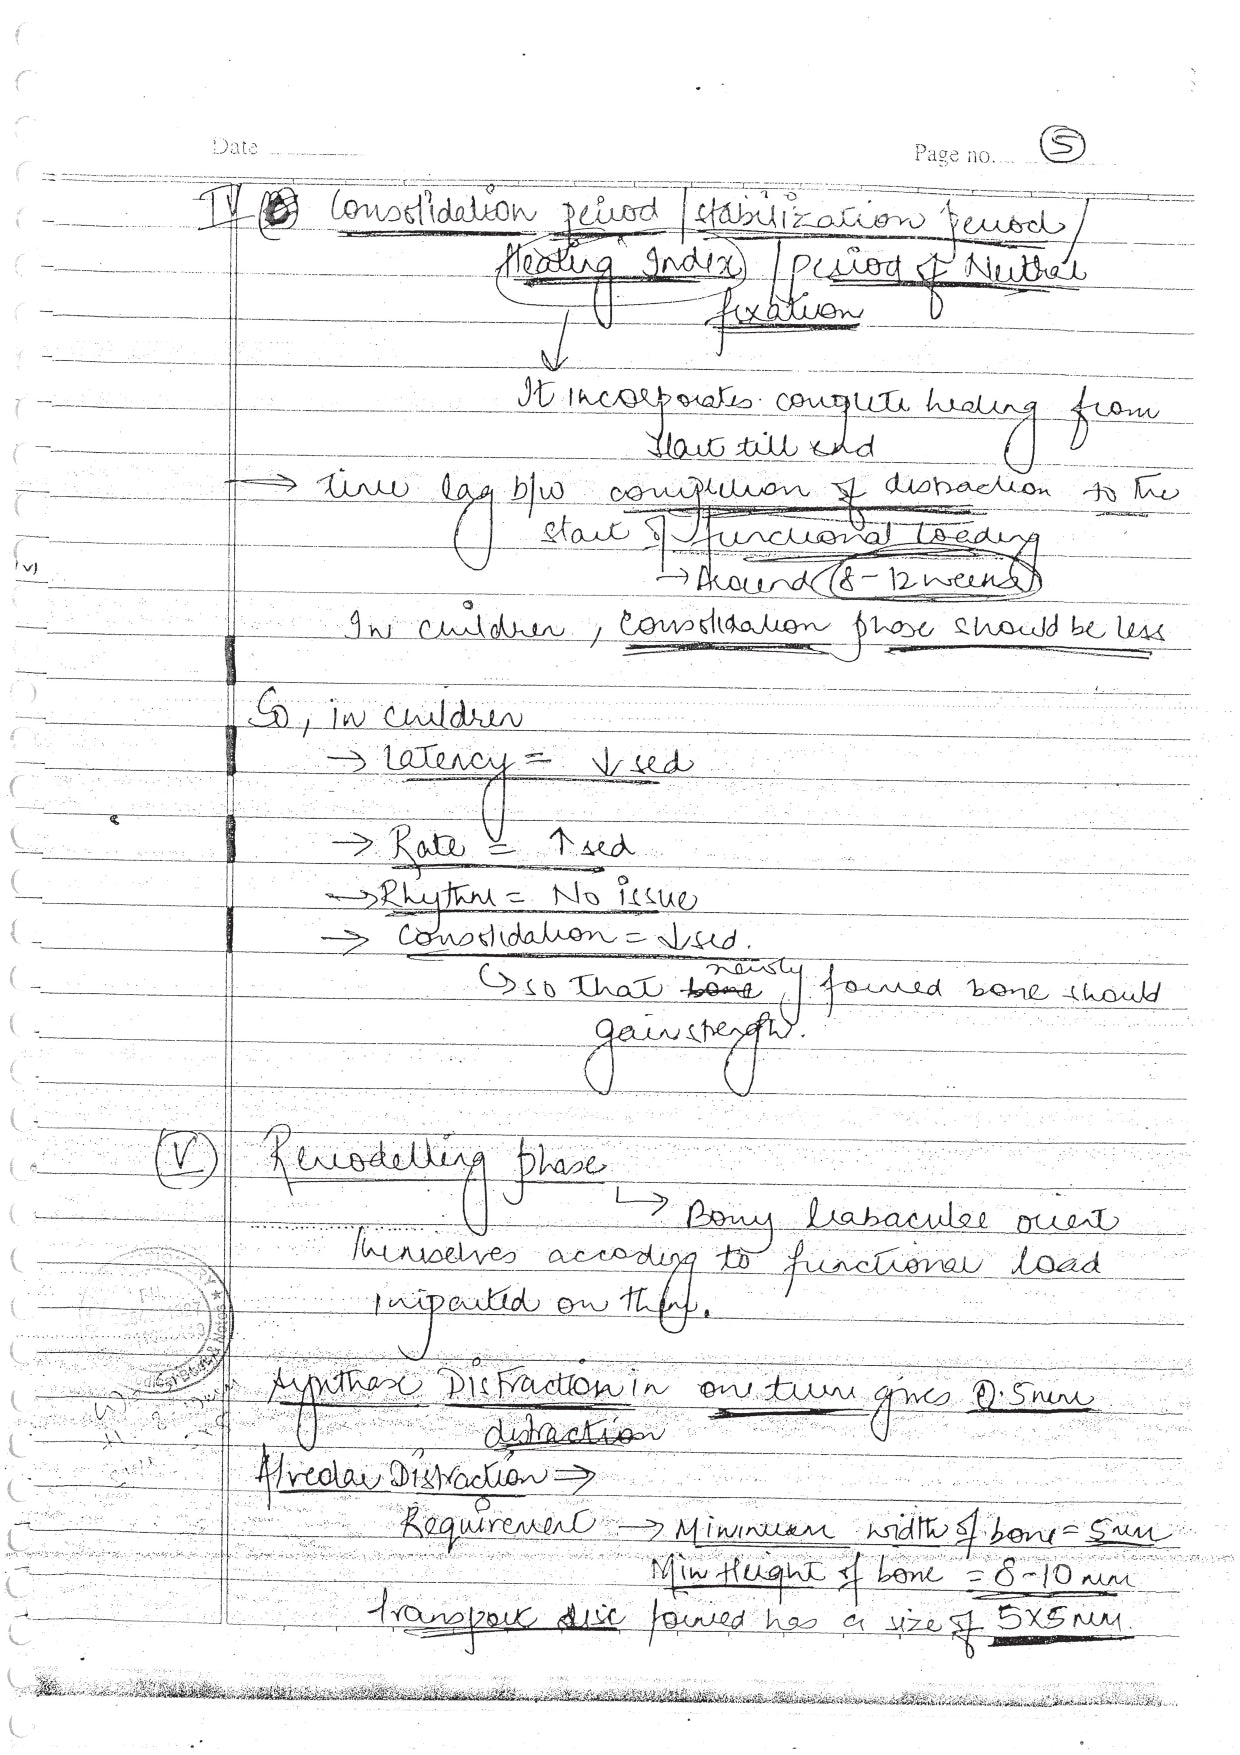 Date
Page no. 5
IV Consolidation period / stabilization period /
Healing Index / period of Neutral
fixation
It incorporates complete healing from
start till end
→ time lag b/w completion of distraction to the
start of functional loading
→ Around 8-12 weeks
In children, consolidation phase should be less
So, in children
→ Latency = ↓sed
→ Rate = ↑sed
→ Rhythm = No issue
→ Consolidation = ↓sed.
newly
↳ so that bone formed bone should
gain strength.
V Remodelling phase
↳ Bony trabaculee orient
themselves accoding to functional load
imparted on them.
Synthase Distraction in one turn gives 0.5mm
distraction
Alveolar Distraction ⇒
Requirement → Minimum width of bone = 5mm
Min Height of bone = 8-10mm
Transport disc formed has a size of 5X5mm.